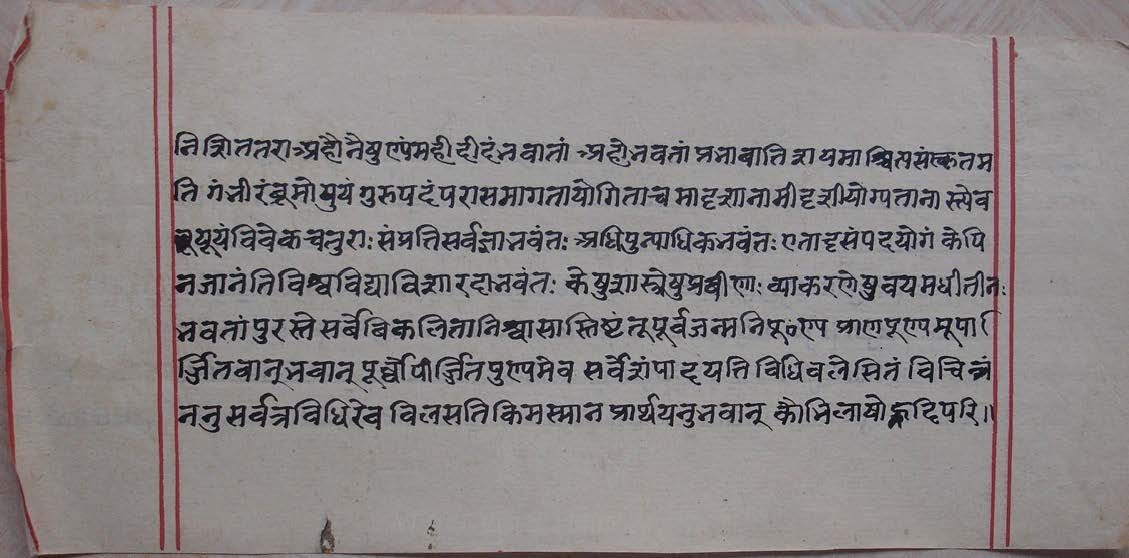 नि शिततरा अहो नैपुण्यं मही दीदं भवातां अहो भवतां प्रभावाति शयमा श्चित्य संस्कृतम
ति गंभीरं ब्रूमो युयं गुरुपदं परासमागतायोगिताच मादृशानामीदृशीयोग्यताना स्त्येव
यूयं विवेकचतुराः संप्रति सर्वज्ञा भवंतः अधिपुत्पाधिकभवंतः एतादृसंपदयोगं केपि
न जानंति विश्वविद्याविशारदा भवंतः केषुशास्त्रेषु प्रवीणाः व्याकरणेषु वयमधीतीनः
भवतां पुरस्ते सर्वे विकलितानिश्वासास्तिष्टंतू पूर्वजन्मनि
र्जितवान् भवान् पूर्वोपार्जितपुण्यमेव सर्वेशंपादयति विधिवलेसितं विचित्रं
ननु सर्वत्र विधिरेव विलसति किमस्मान प्रार्थयनु भवान् कोभिलाषो हृदि परि॥